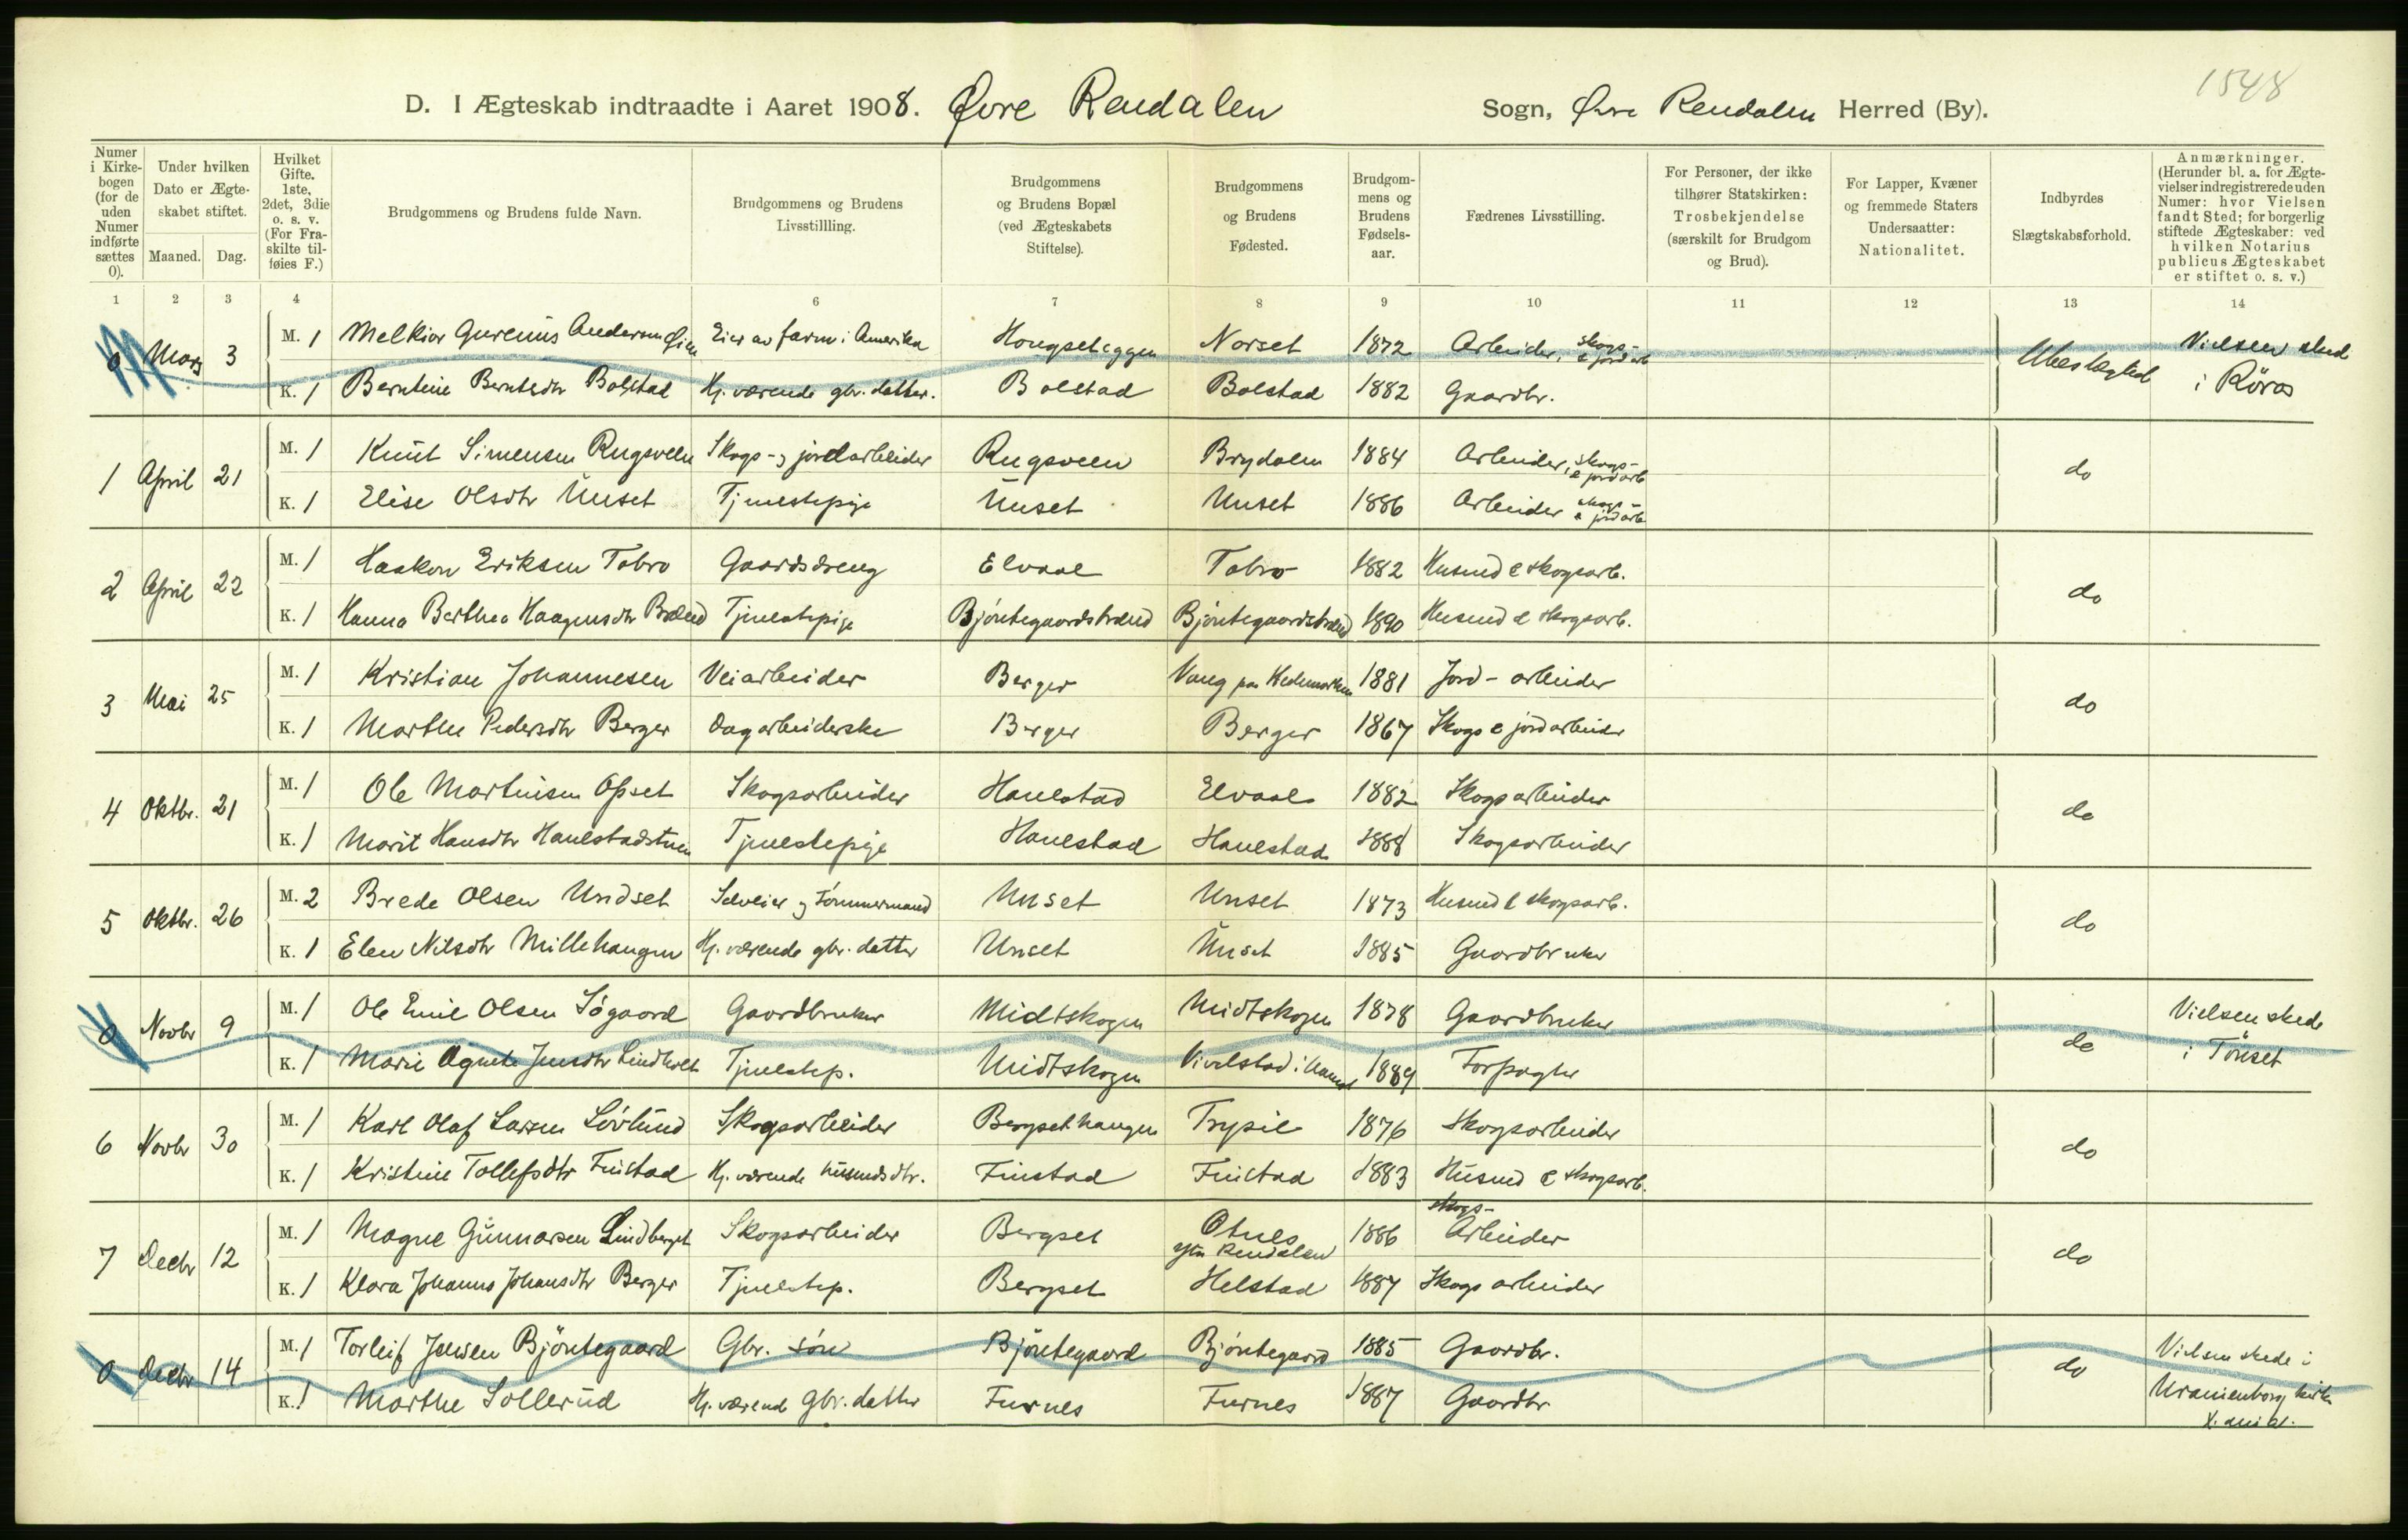 1548
D. I Ægteskab indtraadte i Aaret 1908. Øvre Rendalen Sogn, Øvre Rendalen Herred (By).
Numer i Kirkebogen (for de uden Numer indførte sættes 0).
Under hvilken Dato er Ægteskabet stiftet. Maaned. Dag.
Hvilket Gifte. 1ste, 2det, 3die o. s. v. (For Fraskilte tilføies F.)
Brudgommens og Brudens fulde Navn.
Brudgommens og Brudens Livsstillling.
Brudgommens og Brudens Bopæl (ved Ægteskabets Stiftelse).
Brudgommens og Brudens Fødested.
Brudgommens og Brudens Fødselsaar.
Fædrenes Livsstilling.
For Personer, der ikke tilhører Statskirken: Trosbekjendelse (særskilt for Brudgom og Brud).
For Lapper, Kvæner og fremmede Staters Undersaatter: Nationalitet.
Indbyrdes Slægtskabsforhold.
Anmærkninger. (Herunder bl. a. for Ægtevielser indregistrerede uden Numer: hvor Vielsen fandt Sted; for borgerlig stiftede Ægteskaber: ved hvilken Notarius publicus Ægteskabet er stiftet o. s. v.)
1 2 3 4 6 7 8 9 10 11 12 13 14
0 Mars 3 M. 1 Melkior Gurenius Andersen Eier av farm i Amerika Hongseteggen Norset 1872 Arbeider, skogs- & jordarb Ubeslægted Vielsen sked
K. 1 Berntine Berntsdtr Bolstad Hj. værende gbr. datter. Bolstad Bolstad 1882 Gaardbr. i Röros
1 April 21 M. 1 Knut Simensen Rugsveen Skogs- og jordarbeider Rugsveen Brydalen 1884 Arbeider, skogs- & jordarb do
K. 1 Elise Olsdtr Unset Tjenestepige Unset Unset 1886 Arbeider skogs- & jordarb
2 April 22 M. 1 Haakon Eriksen Tobro Gaardsdreng Elvaal Tobro 1882 Husmd & skogsarb. do
K. 1 Hanna Berthea Haagensdtr Brænd Tjenestepige Bjöntegaardsbrænd Bjöntegaardsbrænd 1890 Husmd & skogsarb.
3 Mai 25 M. 1 Kristian Johannesen Veiarbeider Berger Vang paa Hedemarken 1881 Jord-arbeider do
K. 1 Marthe Pedersdtr Berger Dagarbeiderske Berger Berger 1867 Skogs & jordarbeider
4 Oktbr. 21 M. 1 Ole Martinsen Opset Skogsarbeider Hanestad Elvaal 1882 Skogsarbeider do
K. 1 Marit Hansdtr Hanestadstuen Tjenestepige Hanestad Hanestad 1888 Skogsarbeider
5 Oktbr. 26 M. 2 Brede Olsen Undset Selveier og tömmermand Unset Unset 1873 Husmd & skogsarb. do
K. 1 Elen Nilsdtr Millehaugen Hj. værende gbr. datter Unset Unset 1885 Gaardbruker
0 Novbr 9 M. 1 Ole Emil Olsen Sögaard Gaardbruker Midtskogen Midtskogen 1878 Gaardbruker do Vielsen skede
K. 1 Marie Agnete Jensdtr Lindholt Tjenestep. Midtskogen 1889 Forpagter i Tönset
6 Novbr 30 M. 1 Karl Olaf Larsen Lövlund Skogsarbeider Bergsethaugen Trysil 1876 Skogsarbeider do
K. 1 Kristine Tollefsdtr Finstad Hj. værende husmdsdtr. Finstad Finstad 1883 Husmd & skogsarb.
7 Decbr 12 M. 1 Magne Gunnarsen Lindberget Skogsarbeider Bergset Otnes ytre Rendalen 1886 skogs- Arbeider do
K. 1 Klara Johanna Johansdtr Berger Tjenestep. Bergset Helstad 1887 Skogsarbeider
0 Decbr 14 M. 1 Torleif Jensen Bjöntegaard Gbr. sön Bjöntegaard Bjöntegaard 1885 Gaardbr. do Vielsen skede i
K. 1 Marthe Sollerud Hj. værend Gbr. datter Furnes Furnes 1887 Gaardbr Uranienborg kirke
X.ania.